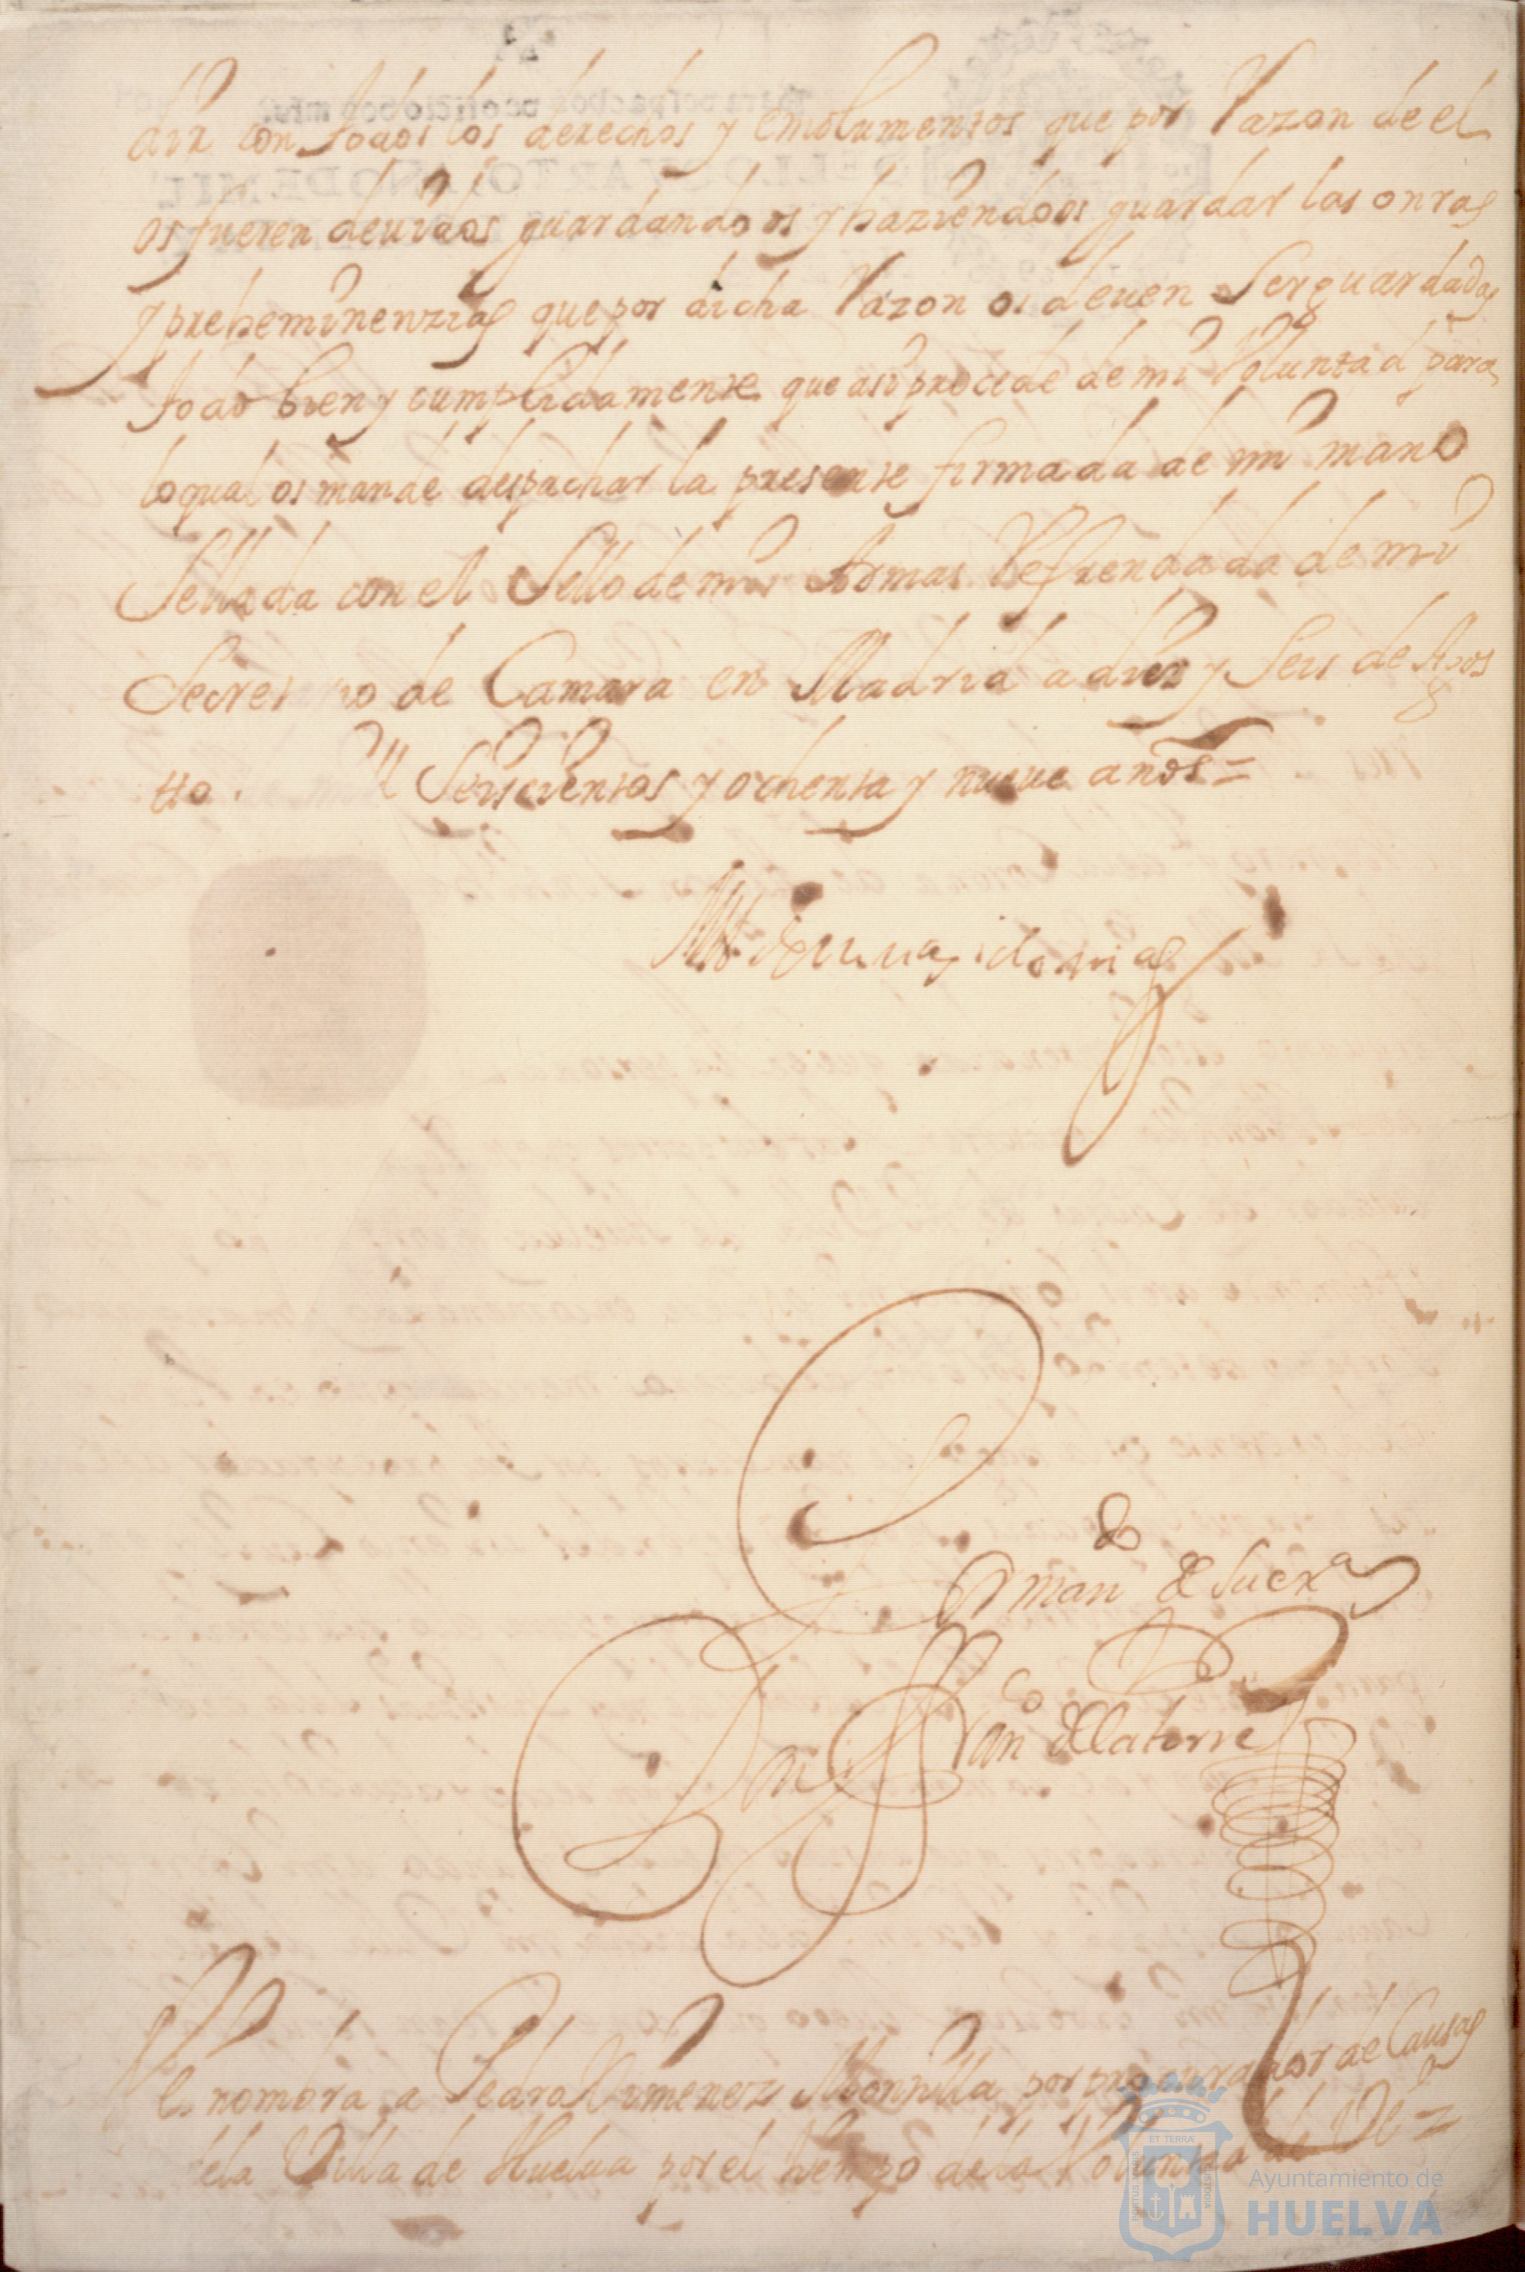 dir con todos los derechos y emolumentos que por Razon de el
os fueren deuidos guardandoos y haziendoos guardar las onras
y preheminenzias que por dicha Razon os deuen Ser guardadas
todo bien y cumplidamente que asi prozede de mi Voluntad para
lo qual os mande despachar la presente firmada de mi mano
Sellada con el Sello de mis Armas Refrendada de mi
Secretario de Camara en Madrid a diez y Seis de Agos
tto. Mil Seiscientos y ochenta y nueue años =
Por man.do de su ex.a
Don Fran.co de la torre
V.E. nombra a Pedro Ximenez Monnilla por procurador de Causas
de la Villa de Huelua por el tiempo de la Voluntad de V.E. =
ET TERRÆ
PORTUS MARIS
CUSTODIA
Ayuntamiento de
HUELVA